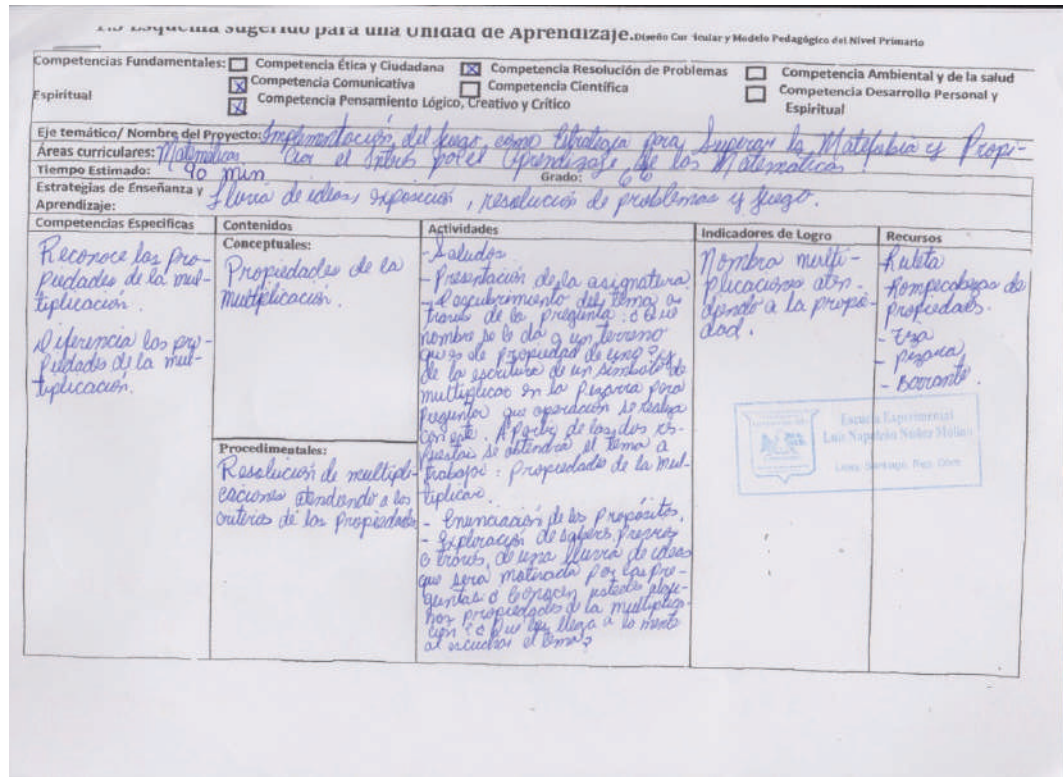 Esquema sugerido para una Unidad de Aprendizaje. Diseño Curricular y Modelo Pedagógico del Nivel Primario
Competencias Fundamentales: Competencia Ética y Ciudadana Competencia Resolución de Problemas Competencia Ambiental y de la salud
Competencia Comunicativa Competencia Científica Competencia Desarrollo Personal y
Espiritual Competencia Pensamiento Lógico, Creativo y Crítico Espiritual
Eje temático/ Nombre del Proyecto: Implementación del juego como Estrategia para Superar la Matefobia y Propi-
Áreas curriculares: Matemática ciar el Interés por el Aprendizaje de las Matemáticas.
Tiempo Estimado: 90 min Grado: 6to
Estrategias de Enseñanza y Lluvia de ideas, exposición, resolución de problemas y juego.
Aprendizaje:
Competencias Especificas
Reconoce las pro-
piedades de la mul-
tiplicación.
Diferencia las pro-
piedades de la mul-
tiplicación.
Contenidos
Conceptuales:
Propiedades de la
multiplicación.
Procedimentales:
Resolución de multipli-
caciones atendiendo a los
criterios de las propiedades
Actividades
- Saludos
- Presentación de la asignatura
- Descubrimiento del tema a
través de la pregunta: ¿Qué
nombre se le da a un terreno
que es de propiedad de uno? y
de la escritura de un símbolo de
multiplicar en la pizarra para
preguntar que operación se realiza
con este. A partir de las dos res-
puestas se obtendrá el tema a
trabajar: Propiedades de la mul-
tiplicar.
- Enunciación de los propósitos.
- Exploración de saberes previos
a través de una lluvia de ideas
que será motivada por las pre-
guntas ¿Conocen ustedes algu-
nas propiedades de la multiplica-
ción? ¿Qué les llega a la mente
al escuchar el tema?
Indicadores de Logro
Nombra multi-
plicaciones aten-
diendo a la propie-
dad.
Recursos
- Ruleta
- Rompecabezas de
propiedades.
- Tiza
- pizarra
- Borrante.
Escuela Experimental
Luis Napoleón Núñez Molina